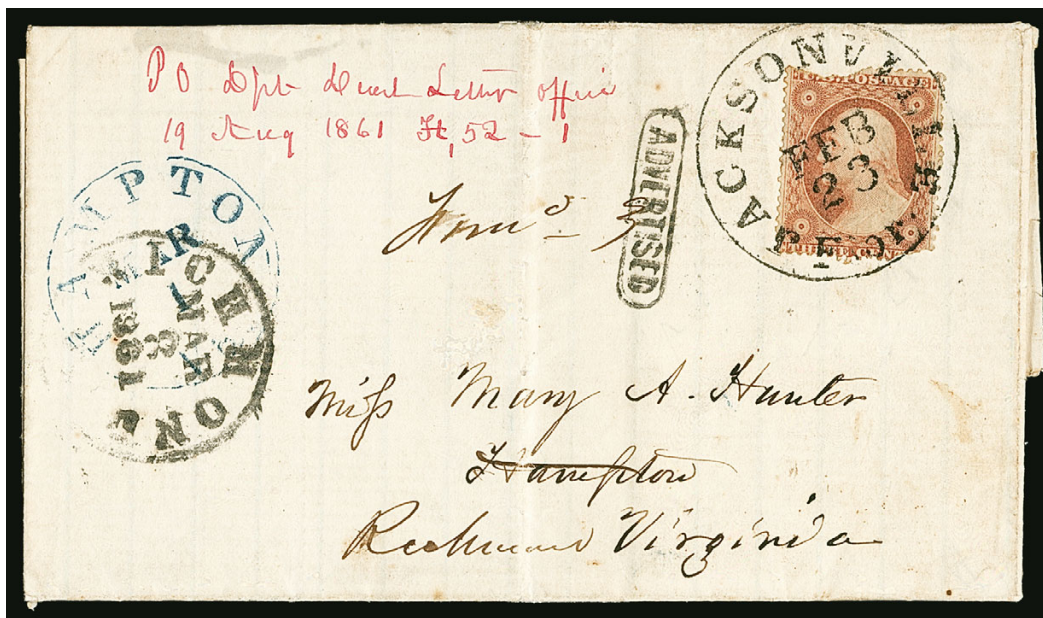 P O Dpt Dead Letter Office
19 Aug 1861 52 - 1
JACKSONVILLE
FEB
23
U.S. POSTAGE
ADVERTISED
HAMPTON
MAR
RICHMOND
MAR
8
1861
Miss Mary A. Hunter
Hampton
Richmond Virginia